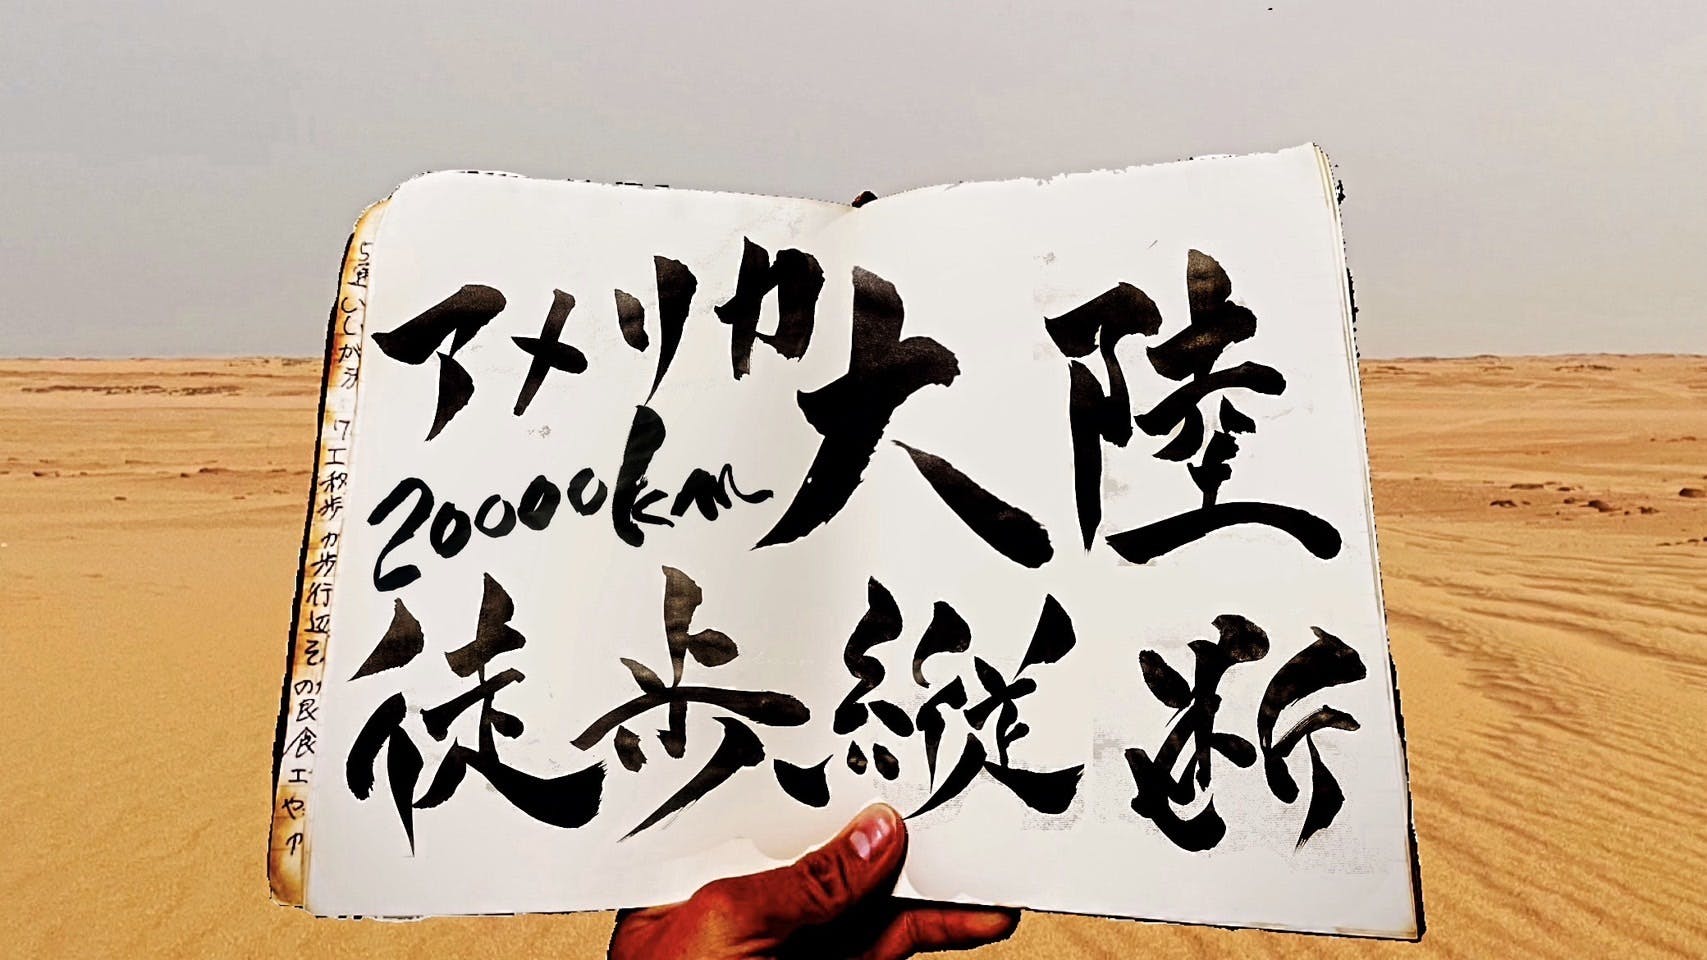 アメリカ大陸
20000km
徒歩縦断